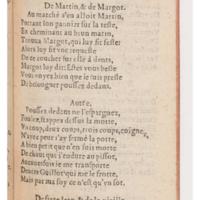 De Martin, & de Margot.
Au marché s'en alloit Martin,
Portant son pannier sur la teste,
En cheminant au brun matin,
Trouua Margot, qui luy fit feste:
Alors luy fit vne requeste
De se coucher sur elle à dents,
Margot luy dit: Estes vous beste
Vous voyez bien que ie suis preste
De besongner poussez dedans.
Autre.
Poussez dedans ne l'espargnez,
Foulez, frappez dessus la motte,
Vn coup, deux coups, trois coups, coignez,
N'ayez peur i'ay framé la potte,
A bien petit que n'en suis morte
De chaut qui s'endure au pissot,
Aucunesfois ie me transporte
Deuers Guillot qui me le frotte,
Mais par ma foy ce n'est qu'vn sot.